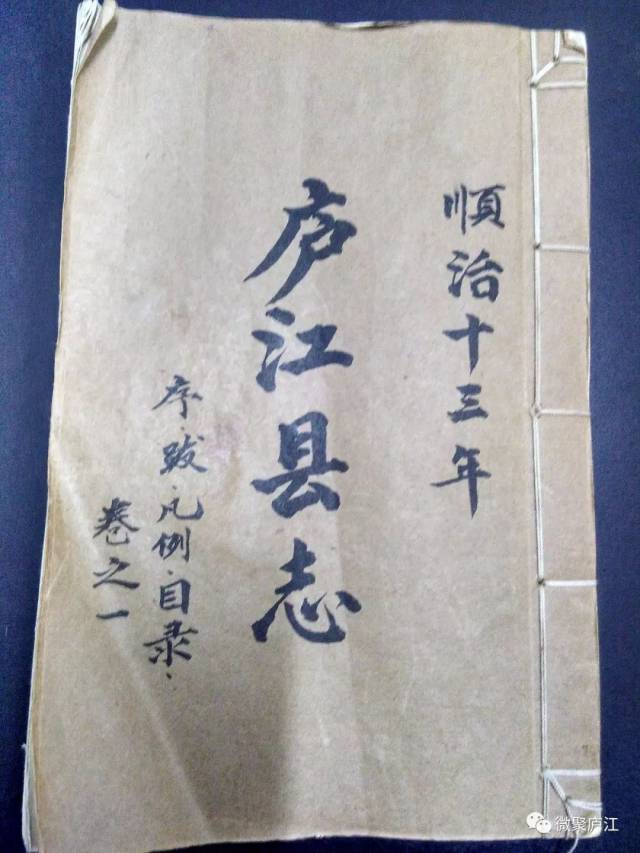 順治十三年
庐江县志
序、跋、凡例、目录、
卷之一
微聚庐江